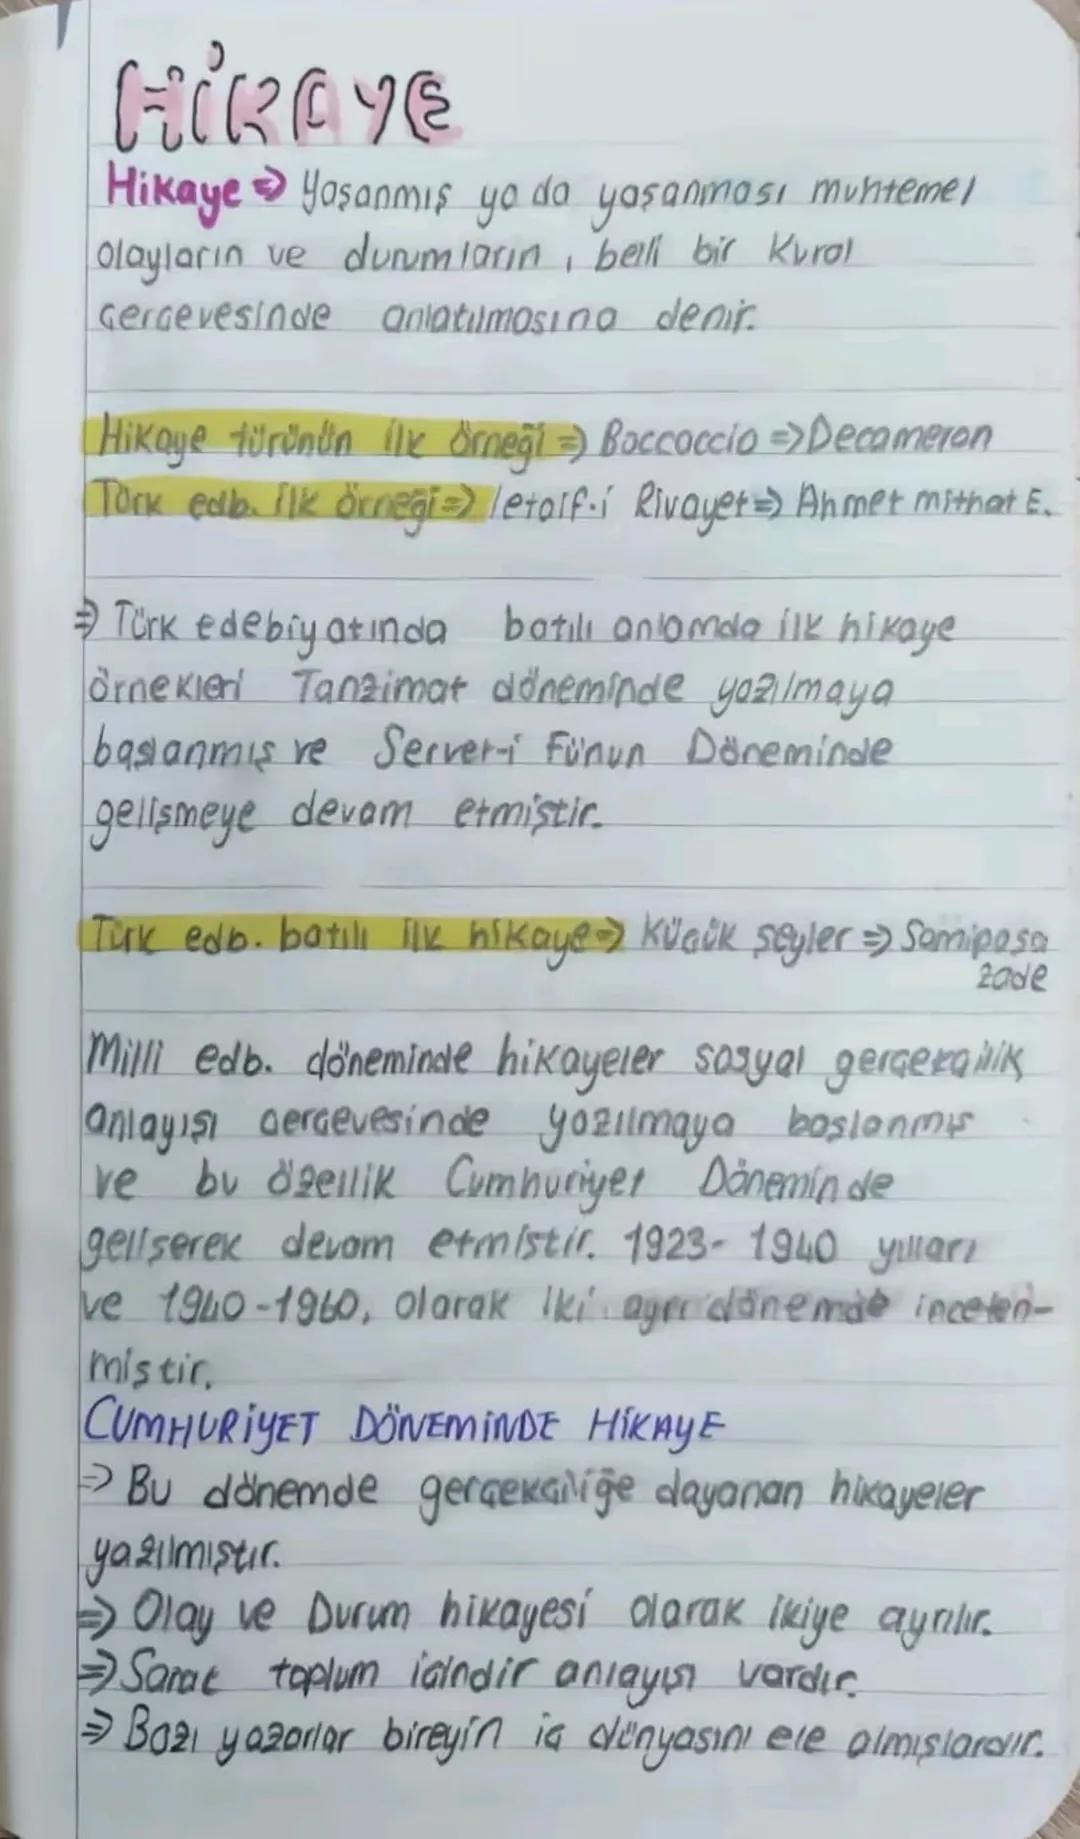 HİKAYE
Hikaye => Yaşanmış ya da yaşanması muhtemel
olayların ve durumların, belli bir kural
çerçevesinde anlatılmasına denir.
Hikaye türünün ilk örneği => Boccoccio => Decameron
Türk edb. ilk örneği => letaif-i Rivayet => Ahmet mithat E.
=> Türk edebiyatında batılı anlamda ilk hikaye
örnekleri Tanzimat döneminde yazılmaya
başlanmış ve Server-i Fünun Döneminde
gelişmeye devam etmiştir.
Türk edb. batılı ilk hikaye => Küçük şeyler => Samipaşa
zade
Milli edb. döneminde hikayeler sosyal gerçekçilik
anlayışı çerçevesinde yazılmaya başlanmış
ve bu özellik Cumhuriyet Döneminde
gelişerek devam etmiştir. 1923-1940 yılları
ve 1940-1960, olarak iki ayrı dönemde incelen-
miştir.
CUMHURİYET DÖNEMİNDE HİKAYE
=> Bu dönemde gerçekçiliğe dayanan hikayeler
yazılmıştır.
=> Olay ve Durum hikayesi olarak ikiye ayrılır.
=> Sanat toplum içindir anlayışı vardır.
=> Bazı yazarlar bireyin iç dünyasını ele almışlardır.